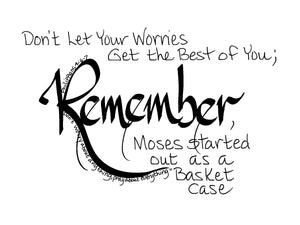 Don't Let Your Worries
Get the Best of You;
Remember,
Moses started
out as a
Basket
Case